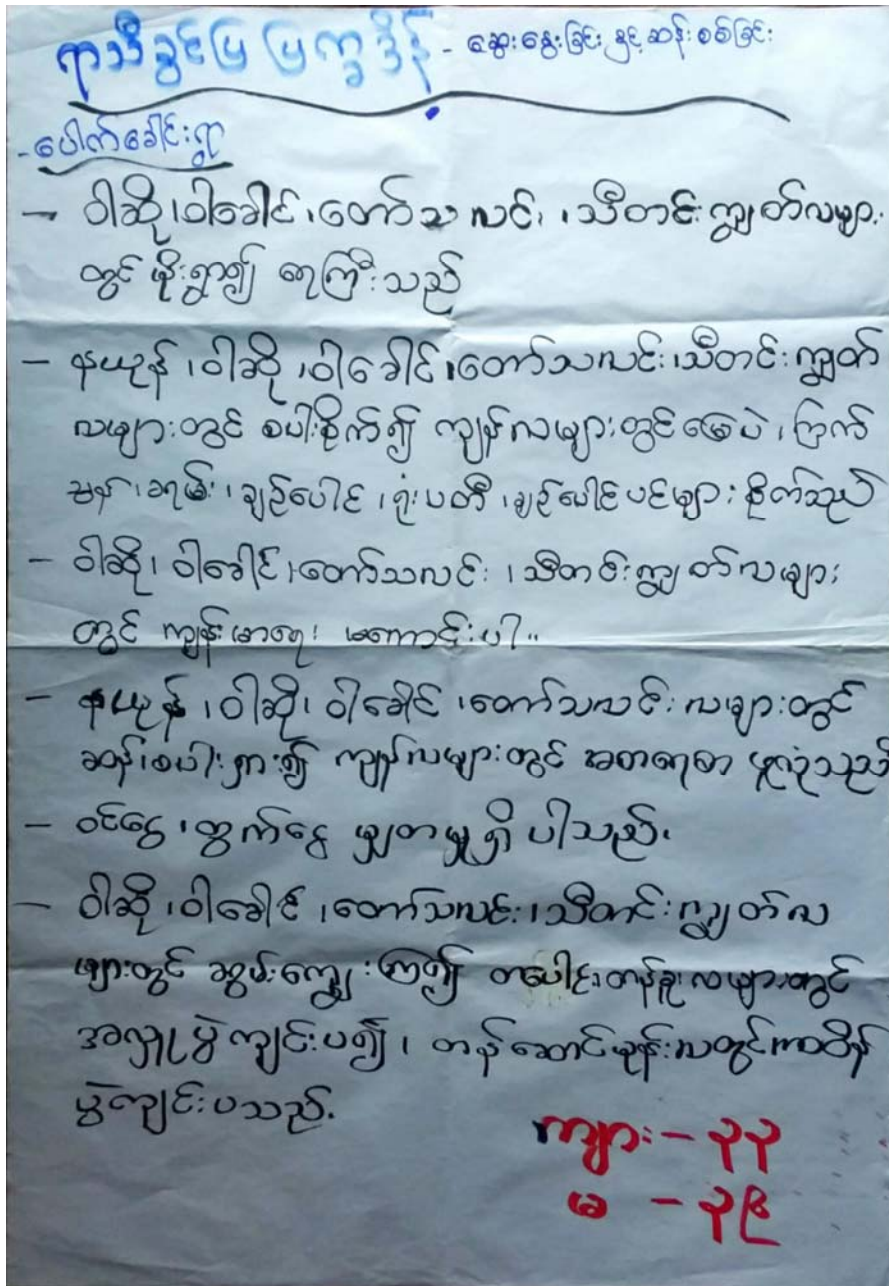 ရာသီခွင်ပြ ပြက္ခဒိန် - ဆွေးနွေးခြင်း နှင့် ဆန်းစစ်ခြင်း
- ပေါက်ခေါင်းရွာ
- ဝါဆို၊ ဝါခေါင်၊ တော်သလင်း၊ သီတင်းကျွတ်လများ
တွင် မိုးရွာ၍ ရေကြီးသည်
- နယုန်၊ ဝါဆို၊ ဝါခေါင်၊ တော်သလင်း၊ သီတင်းကျွတ်
လများတွင် စပါးစိုက်၍ ကျန်လများတွင် မြေပဲ၊ ကြက်
သွန်၊ ခရမ်း၊ ချဉ်ပေါင်၊ ရုံးပတီ၊ ချဉ်ပေါင်ပင်များ စိုက်သည်
- ဝါဆို၊ ဝါခေါင်၊ တော်သလင်း၊ သီတင်းကျွတ်လများ
တွင် ကျန်းမာရေး မကောင်းပါ။
- နယုန်၊ ဝါဆို၊ ဝါခေါင်၊ တော်သလင်းလများတွင်
ဆန်စပါးရှား၍ ကျန်လများတွင် အစာရေစာ ဖူလုံသည်
- ဝင်ငွေ၊ ထွက်ငွေ မျှတမှုရှိပါသည်။
- ဝါဆို၊ ဝါခေါင်၊ တော်သလင်း၊ သီတင်းကျွတ်လ
များတွင် ဆွမ်းကျွေးကြ၍ တပေါင်း၊ တန်ခူးလများတွင်
အလှူပွဲကျင်းပ၍၊ တန်ဆောင်မုန်းလတွင် ကထိန်
ပွဲကျင်းပသည်။
ကျား - ၃၃
မ - ၃၉